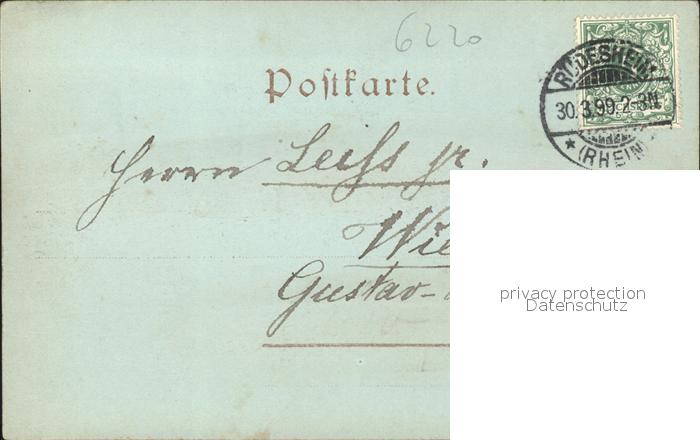 6220
Postkarte.
RÜDESHEIM
30.3.99.2-3N.
* (RHEIN)
Herrn
Wie
Gustav-
privacy protection
Datenschutz